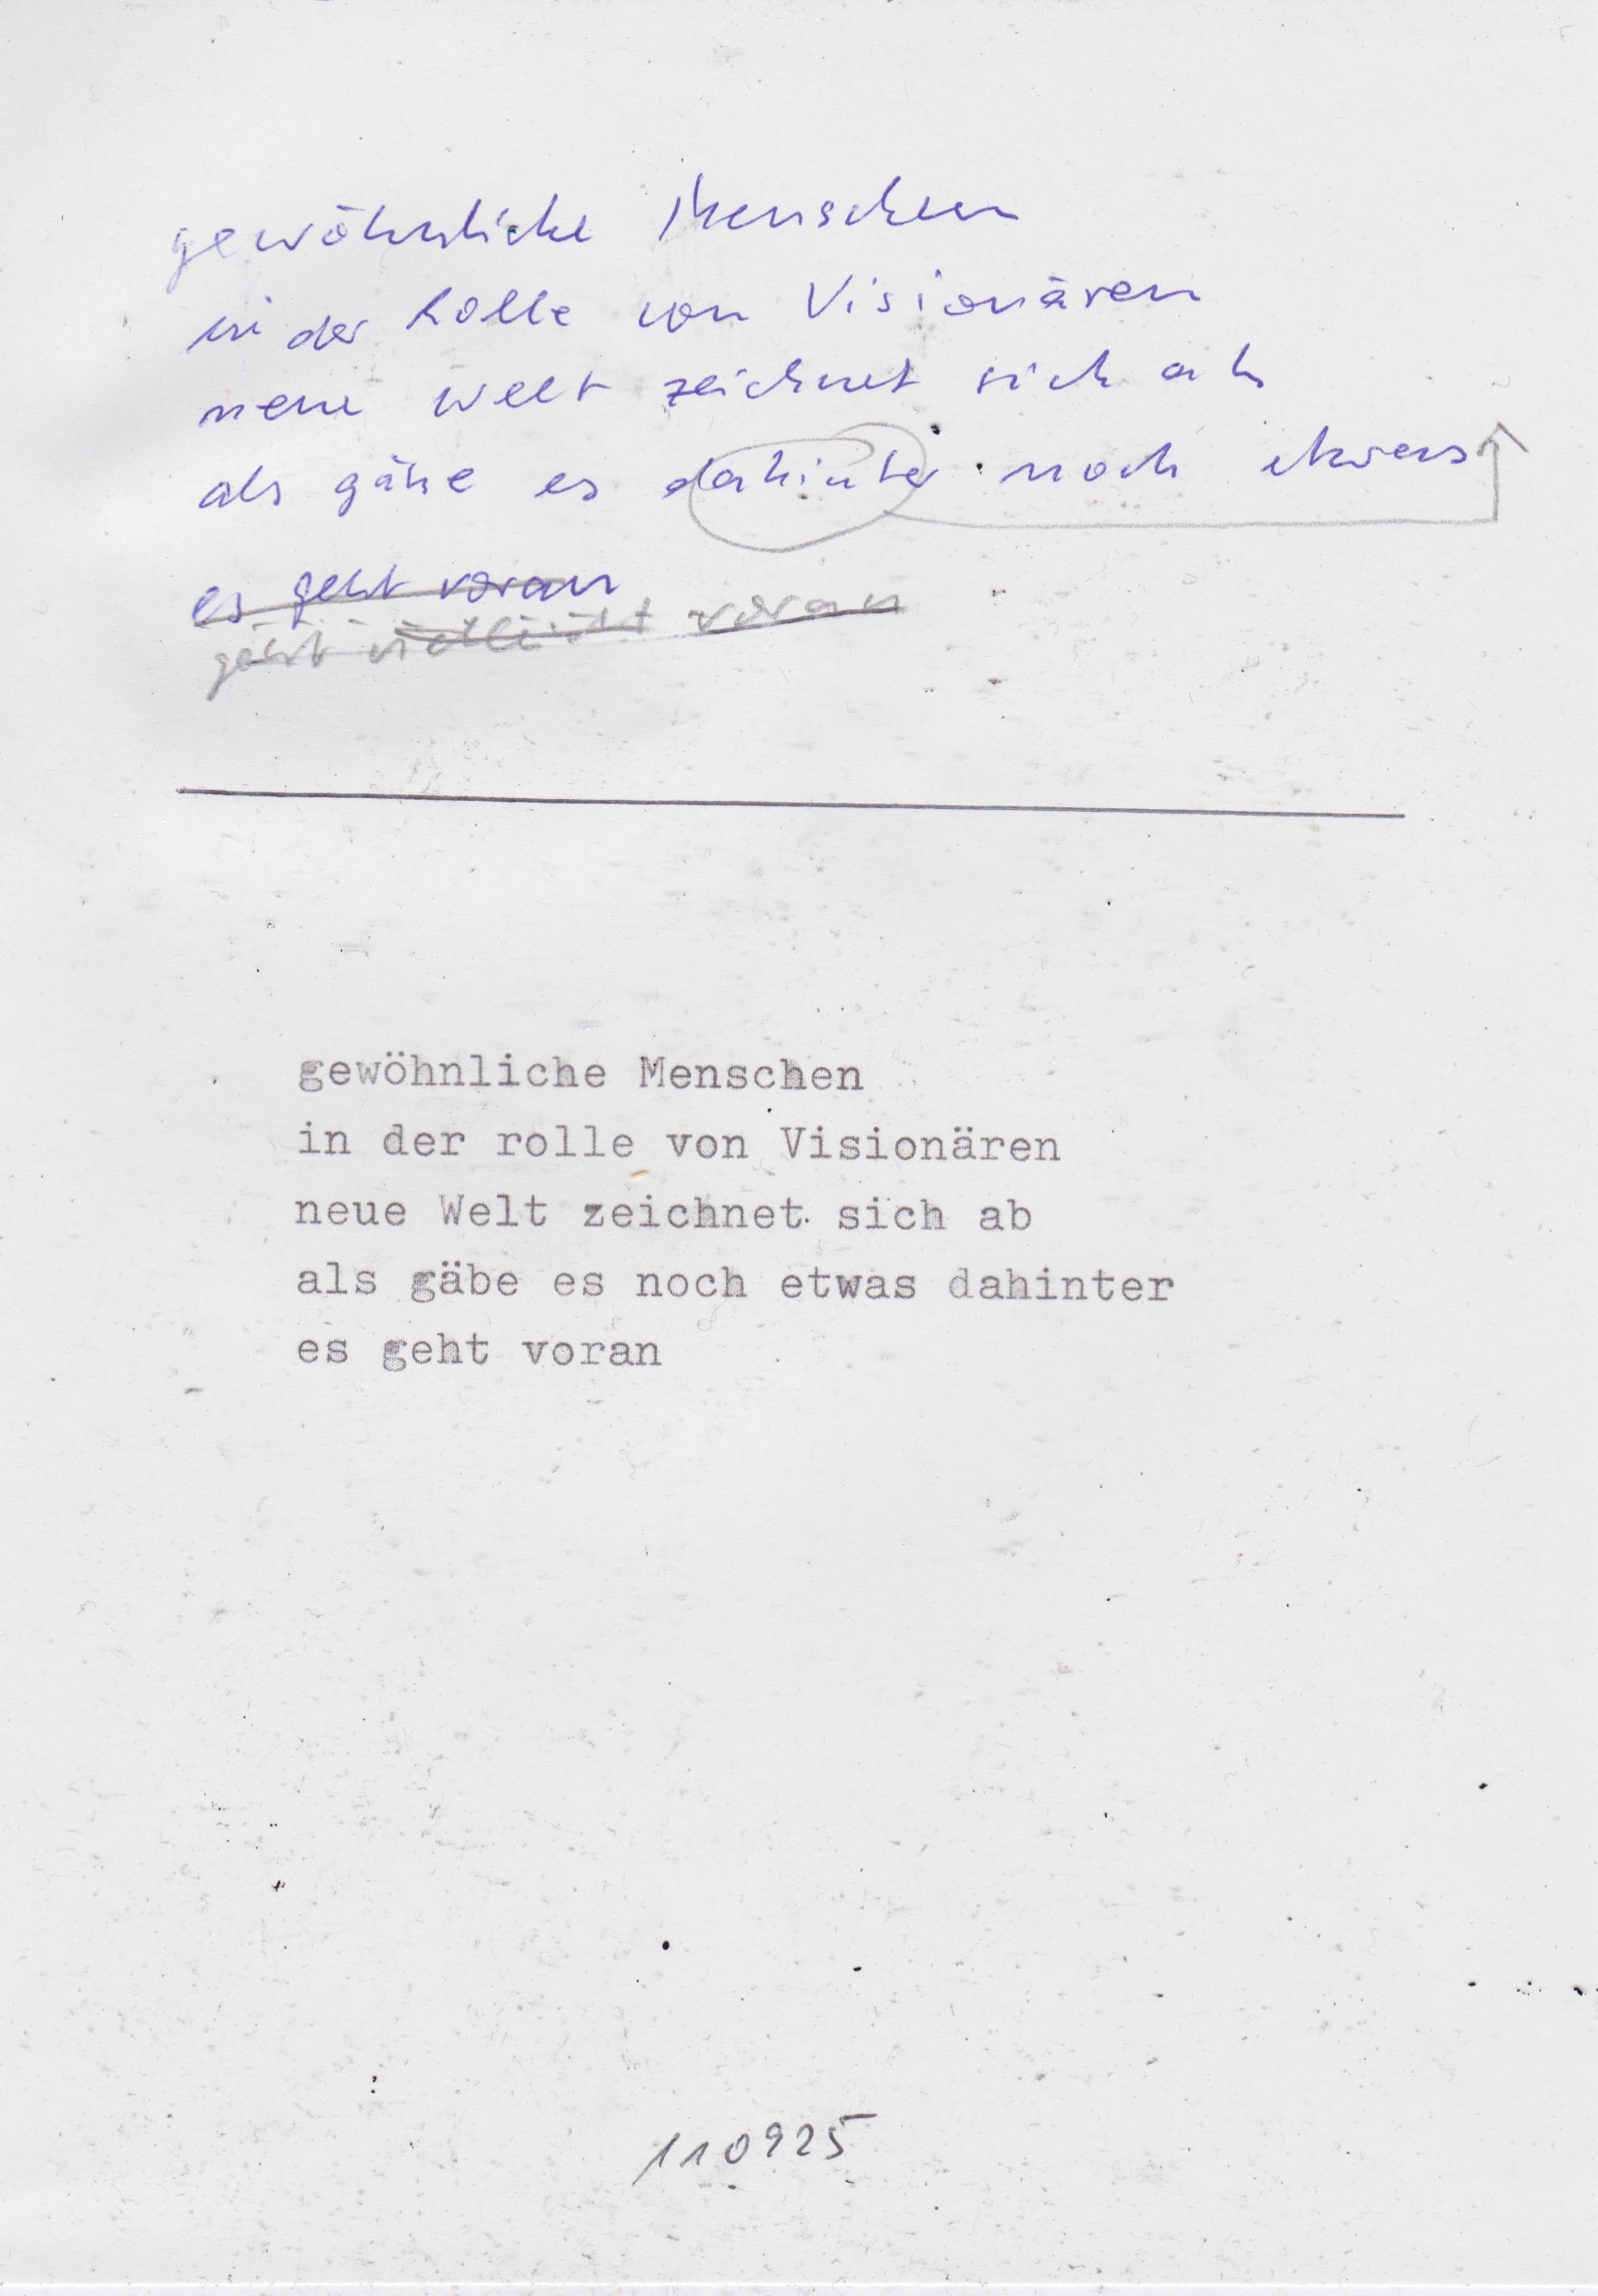 gewöhnliche Menschen
in der Rolle von Visionären
neue Welt zeichnet sich ab
als gäbe es dahinter noch etwas
es geht voran
geht vielleicht voran
gewöhnliche Menschen
in der rolle von Visionären
neue Welt zeichnet sich ab
als gäbe es noch etwas dahinter
es geht voran
110925